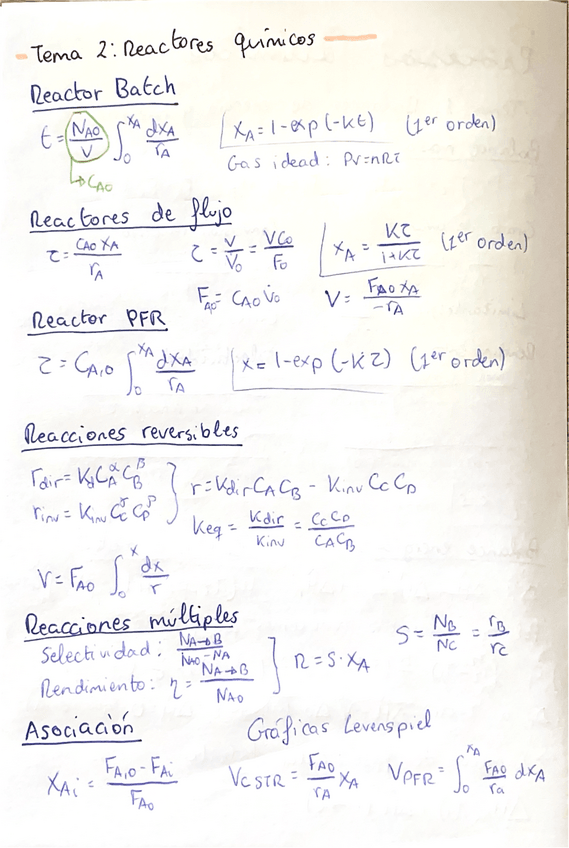 Tema 2: Reactores químicos
Reactor Batch
t = N_A0/V ∫₀^{x_A} dx_A/r_A   x_A = 1 - exp(-kt) (1er orden)
→ C_A0   Gas idead: PV=nRT
Reactores de flujo
τ = C_A0 x_A / r_A   τ = V/V̇₀ = V C₀/F₀   x_A = Kτ/(1+Kτ) (1er orden)
F_A0 = C_A0 V̇₀   V = F_A0 x_A / -r_A
Reactor PFR
τ = C_A,0 ∫₀^{x_A} dx_A/r_A   x = 1 - exp(-Kτ) (1er orden)
Reacciones reversibles
r_dir = K_d C_A^α C_B^β
r_inv = K_inv C_C^γ C_D^ρ } r = K_dir C_A C_B - K_inv C_C C_D
Keq = K_dir/K_inv = C_C C_D / C_A C_B
V = F_A0 ∫₀^x dx/r
Reacciones múltiples
Selectividad: N_A→B / N_A0 - N_A
Rendimiento: η = N_A→B / N_A0 } η = S·x_A   S = N_B/N_C = r_B/r_C
Asociación   Gráficas Levenspiel
X_Ai = F_A,0 - F_Ai / F_A0   V_CSTR = F_A0/r_A X_A   V_PFR = ∫₀^{x_A} F_A0/r_a dx_A